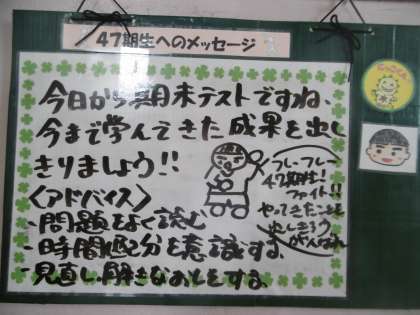 47期生へのメッセージ
今日から期末テストですね、
今まで学んできた成果を出し
きりましょう!!
〈アドバイス〉
・問題をよく読む
・時間配分を意識する
・見直し、解きなおしをする。
フレーフレー
47期生!
ファイト!!
やってきたことを
出しきろう
がんばれ